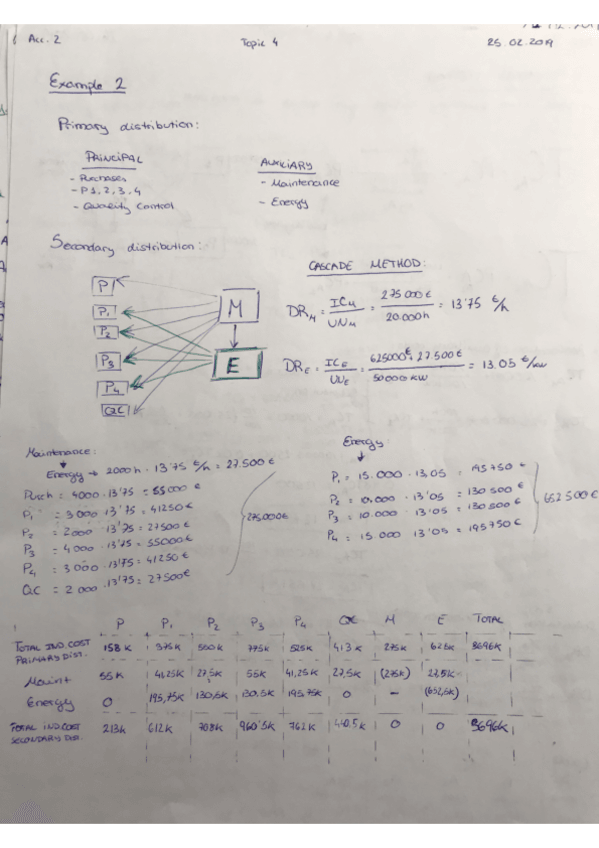 Acc. 2 Topic 4 25.02.2019
Example 2
Primary distribution:
PRINCIPAL AUXILIARY
- Purchases - Maintenance
- P1, 2, 3, 4 - Energy
- Quality Control
Secondary distribution:
CASCADE METHOD:
P
P1
P2
P3
P4
QC
M
E
DR_M = IC_M / UN_M = 275 000 € / 20.000 h = 13'75 €/h
DR_E = IC_E / UN_E = 625000€ + 27.500 € / 50000 KW = 13.05 €/kW
Maintenance:
Energy → 2000h · 13'75 €/h = 27.500 €
Purch = 4000 · 13'75 = 55000 €
P1 = 3000 · 13'75 = 41250 €
P2 = 2000 · 13'75 = 27500 €
P3 = 4000 · 13'75 = 55000 €
P4 = 3000 · 13'75 = 41250 €
QC = 2000 · 13'75 = 27500 €
275.000€
Energy:
P1 = 15.000 · 13,05 = 195750 €
P2 = 10.000 · 13'05 = 130 500 €
P3 = 10.000 · 13'05 = 130 500 €
P4 = 15.000 · 13'05 = 195750 €
652 500 €
P P1 P2 P3 P4 QC M E TOTAL
TOTAL IND. COST PRIMARY DIST. 158 K 375K 550K 775K 525K 413K 275K 625K 3696K
Maint 55K 41,25K 27,5K 55K 41,25K 27,5K (275K) 27,5K
Energy 0 195,75K 130,5K 130,5K 195,75K 0 - (652,5K)
TOTAL IND. COST SECONDARY DIST. 213K 612K 708K 960'5K 762K 440.5K 0 0 3696K